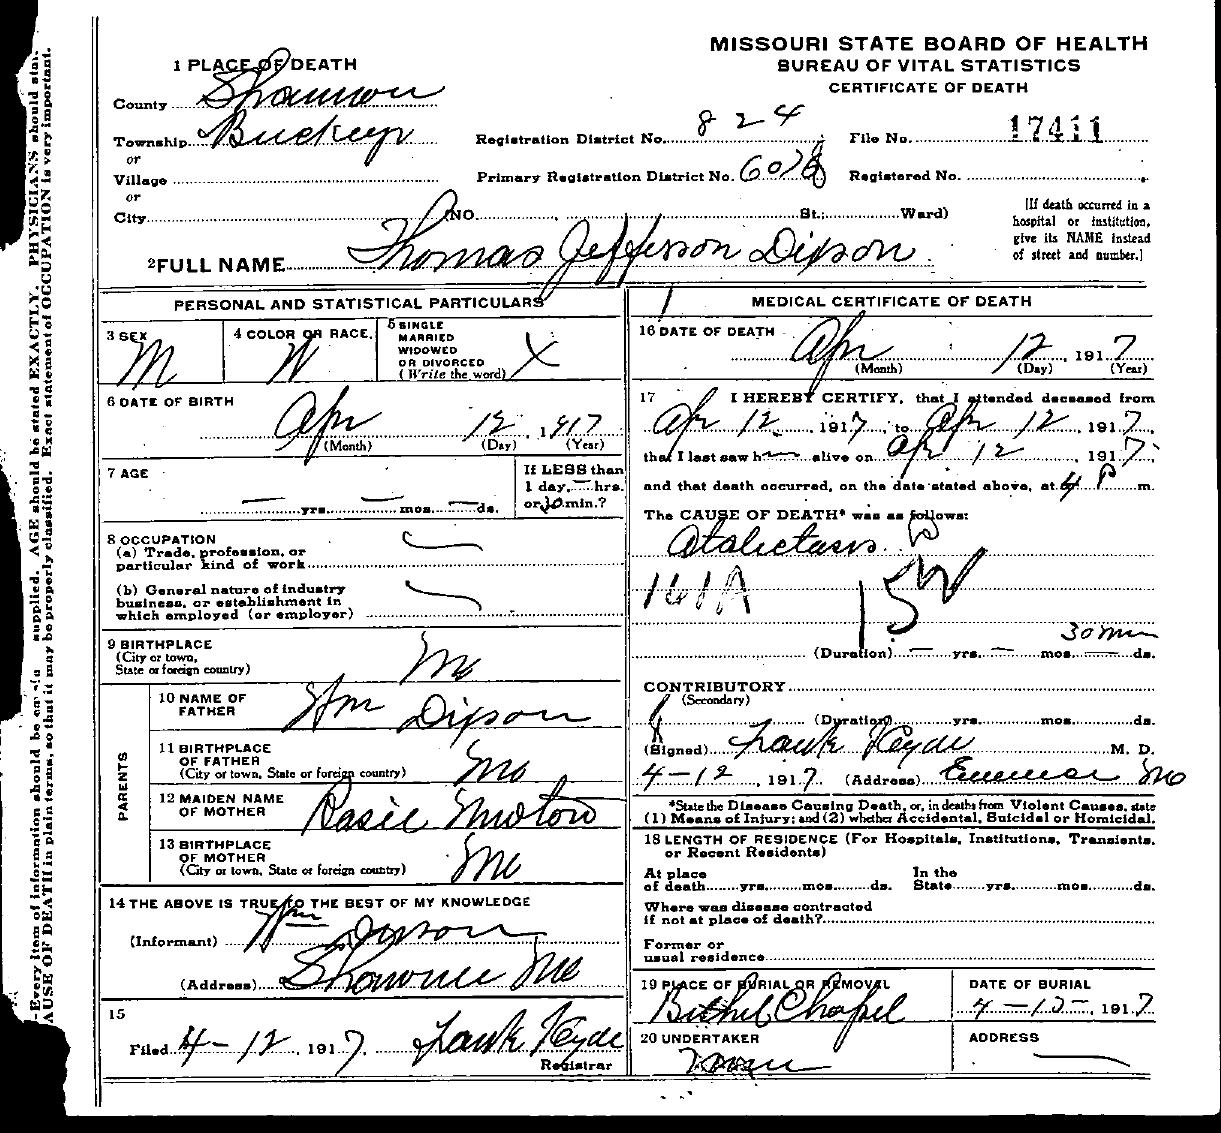 MISSOURI STATE BOARD OF HEALTH
BUREAU OF VITAL STATISTICS
CERTIFICATE OF DEATH
1 PLACE OF DEATH
County Shannon
Township Buckeye
or
Village
or
City
Registration District No. 824
File No. 17411
Primary Registration District No.
Registered No.
(NO. St.; Ward)
[If death occurred in a
hospital or institution,
give its NAME instead
of street and number.]
2 FULL NAME Thomas Jefferson Dixson
PERSONAL AND STATISTICAL PARTICULARS
3 SEX M
4 COLOR OR RACE. W
5 SINGLE
MARRIED
WIDOWED
OR DIVORCED
(Write the word) X
6 DATE OF BIRTH
Apr 12, 1917
(Month) (Day) (Year)
7 AGE
yrs. mos. ds.
If LESS than
1 day, — hrs.
or 30 min.?
8 OCCUPATION
(a) Trade, profession, or
particular kind of work
(b) General nature of industry
business, or establishment in
which employed (or employer)
9 BIRTHPLACE
(City or town,
State or foreign country) Mo
PARENTS
10 NAME OF
FATHER Wm Dixson
11 BIRTHPLACE
OF FATHER
(City or town, State or foreign country) Mo
12 MAIDEN NAME
OF MOTHER Rosie Newton
13 BIRTHPLACE
OF MOTHER
(City or town, State or foreign country) Mo
14 THE ABOVE IS TRUE TO THE BEST OF MY KNOWLEDGE
(Informant) Wm Dixson
(Address) Mo
15
Filed 4-12, 1917. Frank Hyde
Registrar
MEDICAL CERTIFICATE OF DEATH
16 DATE OF DEATH
Apr 12, 1917
(Month) (Day) (Year)
17 I HEREBY CERTIFY, that I attended deceased from
Apr 12, 1917, to Apr 12, 1917,
that I last saw him alive on Apr 12, 1917,
and that death occurred, on the date stated above, at 4 P m.
The CAUSE OF DEATH* was as follows:
Atalictasis
161A
30 min
(Duration) — yrs. — mos. — ds.
CONTRIBUTORY
(Secondary)
(Duration) yrs. mos. ds.
(Signed) Frank Hyde M. D.
4-12, 1917. (Address) Eminence Mo
*State the Disease Causing Death, or, in deaths from Violent Causes, state
(1) Means of Injury; and (2) whether Accidental, Suicidal or Homicidal.
18 LENGTH OF RESIDENCE (For Hospitals, Institutions, Transients,
or Recent Residents)
At place
of death yrs. mos. ds.
In the
State yrs. mos. ds.
Where was disease contracted
if not at place of death?
Former or
usual residence
19 PLACE OF BURIAL OR REMOVAL
Bethel Chapel
DATE OF BURIAL
4-13-, 1917
20 UNDERTAKER
None
ADDRESS
Every item of information should be supplied. AGE should be stated EXACTLY. PHYSICIANS should
CAUSE OF DEATH in plain terms, so that it may be properly classified. Exact statement of OCCUPATION is very important.